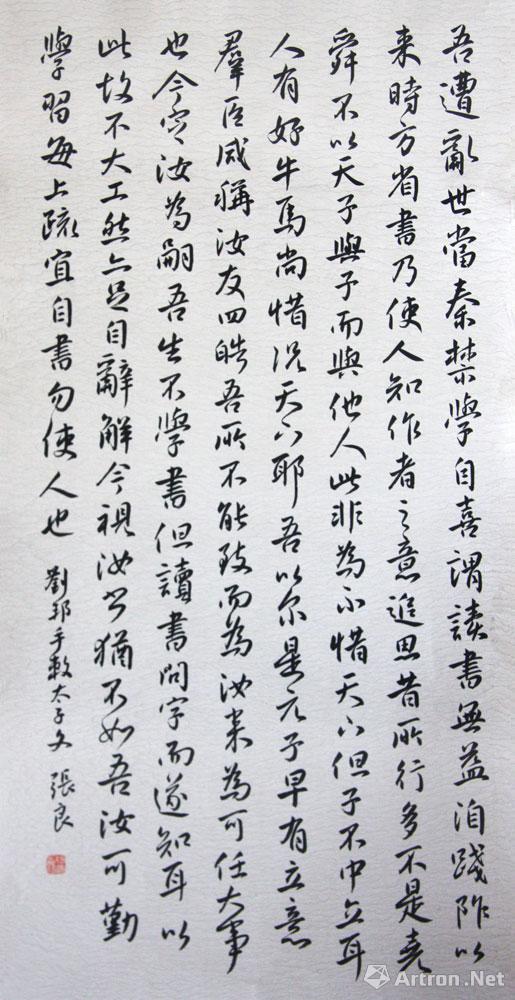 吾遭亂世當秦禁學自喜謂讀書無益洎踐阼以
来時方省書乃使人知作者之意追思昔所行多不是堯
舜不以天子與子而與他人此非為不惜天下但子不中立耳
人有好牛馬尚惜況天下耶吾以尔是元子早有立意
羣臣咸稱汝友四皓吾所不能致而為汝来為可任大事
也今定汝為嗣吾生不學書但讀書問字而遂知耳以
此故不大工然亦足自辭解今視汝書猶不如吾汝可勤
學習每上疏宜自書勿使人也 劉邦手敕太子文 張良
Artron.Net